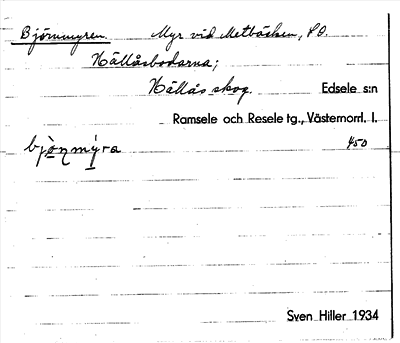 Björnmyren. Myr vid Metbäcken, SO.
Hällåsbodarna;
Hällås skog. Edsele s:n
Ramsele och Resele tg., Västernorrl. l.
bjò̱ṇmý̱ra 450
Sven Hiller 1934